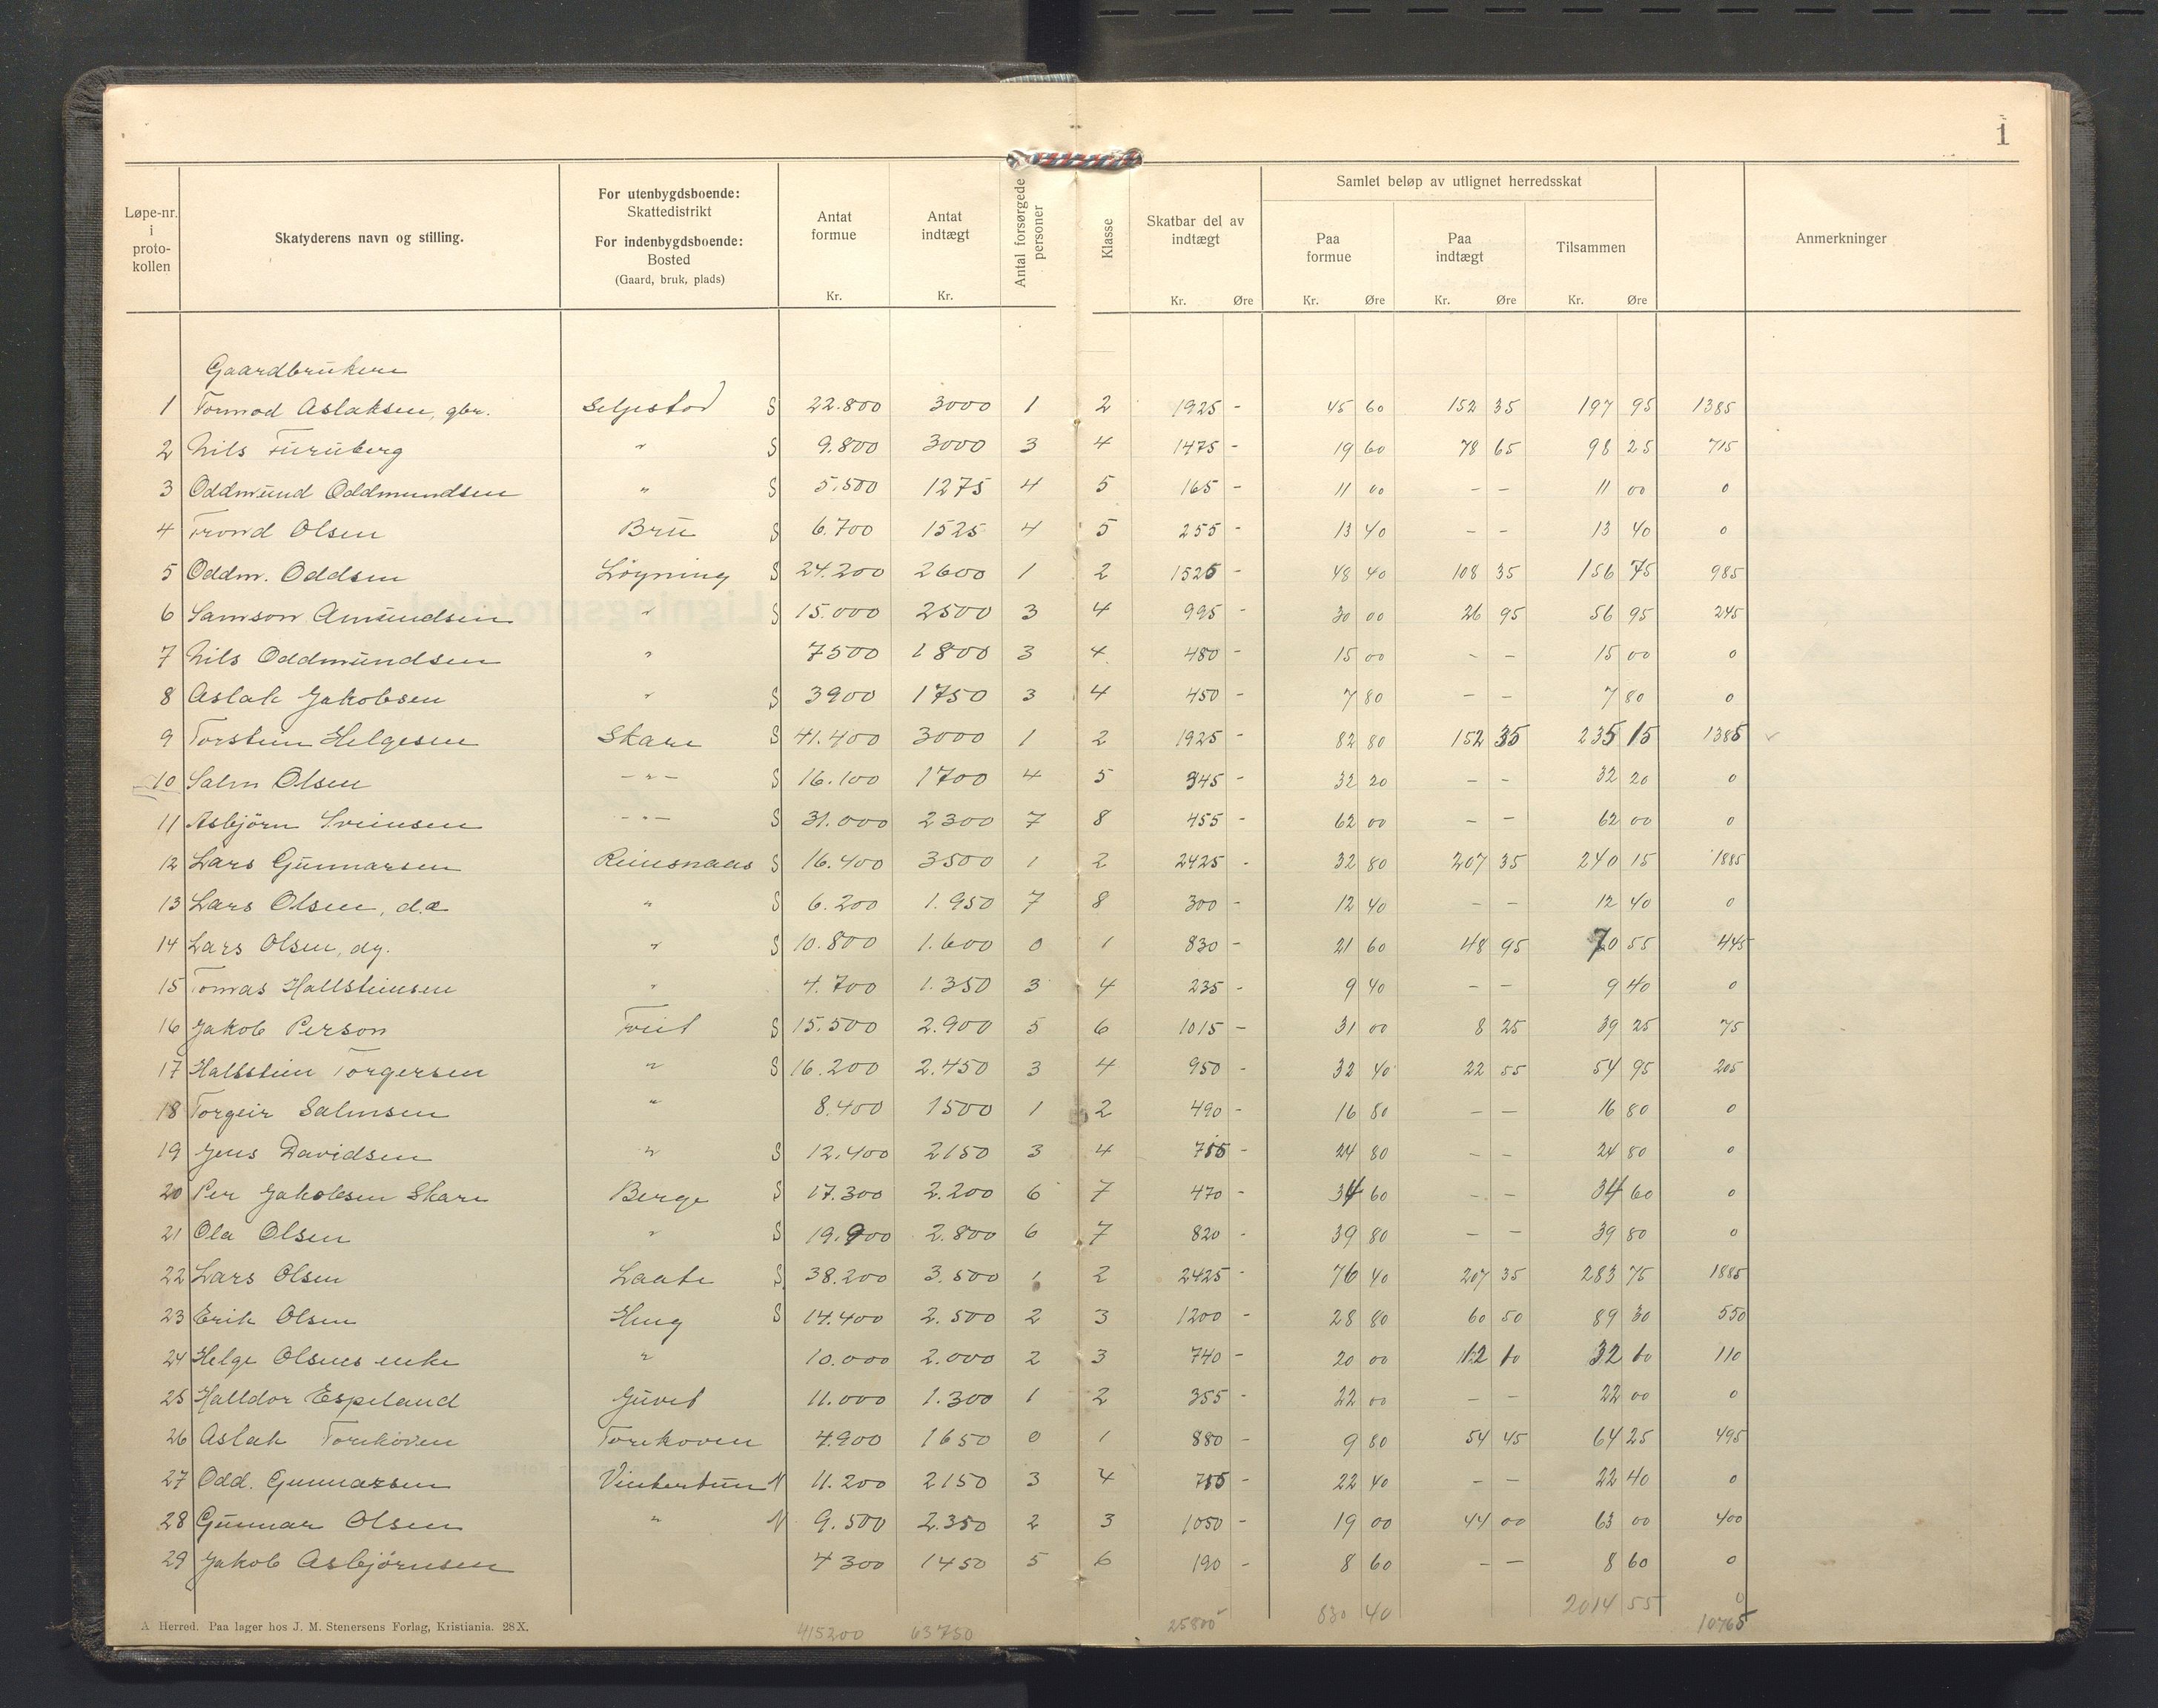 1
Løpe-nr. i proto-kollen
Skatyderens navn og stilling.
For utenbygdsboende: Skattedistrikt
For indenbygdsboende: Bosted (Gaard, bruk, plads)
Antat formue Kr.
Antat indtægt Kr.
Antal forsørgede personer
Klasse
Skatbar del av indtægt Kr. Øre
Samlet beløp av utlignet herredsskat
Paa formue Kr. Øre
Paa indtægt Kr. Øre
Tilsammen Kr. Øre
Anmerkninger
Gaardbrukere
1 Tormod Aslaksen, gbr. Seljestad S 22.800 3000 1 2 1925 - 45 60 152 35 197 95 1385
2 Nils Furuberg " S 9.800 3000 3 4 1475 - 19 60 78 65 98 25 715
3 Oddmund Oddmundsen " S 5.500 1275 4 5 165 - 11 00 - - 11 00 0
4 Trond Olsen Bru S 6.700 1525 4 5 255 - 13 40 - - 13 40 0
5 Oddm. Oddsen Løyning S 24.200 2600 1 2 1525 - 48 40 108 35 156 75 985
6 Samson Amundsen " S 15.000 2500 3 4 995 - 30 00 26 95 56 95 245
7 Nils Oddmundsen " 7500 1800 3 4 480 - 15 00 - - 15 00 0
8 Aslak Jakobsen " S 3900 1750 3 4 450 - 7 80 - - 7 80 0
9 Torstein Helgesen Skare S 41.400 3000 1 2 1925 - 82 80 152 35 235 15 1385
10 Salm Olsen - " - S 16.100 1700 4 5 345 - 32 20 - - 32 20 0
11 Asbjörn Sveinsen - " - S 31.000 2300 7 8 455 - 62 00 - - 62 00 0
12 Lars Gunnarsen Reinsnaas S 16.400 3500 1 2 2425 - 32 80 207 35 240 15 1885
13 Lars Olsen, d.æ " S 6.200 1.950 7 8 300 - 12 40 - - 12 40 0
14 Lars Olsen, dy. " S 10.800 1.600 0 1 830 - 21 60 48 95 70 55 445
15 Tomas Hallsteinsen " 4.700 1.350 3 4 235 - 9 40 - - 9 40 0
16 Jakob Person Tveit S 15.500 2.900 5 6 1015 - 31 00 8 25 39 25 75
17 Hallstein Torgersen " S 16.200 2.450 3 4 950 - 32 40 22 55 54 95 205
18 Torgeir Salmsen " 8.400 1500 1 2 490 - 16 80 - - 16 80 0
19 Jens Davidsen " S 12.400 2150 3 4 715 - 24 80 - - 24 80 0
20 Per Jakobsen Skare Berge S 17.300 2.200 6 7 470 - 34 60 - - 34 60 0
21 Ola Olsen " S 19.900 2.800 6 7 820 - 39 80 - - 39 80 0
22 Lars Olsen Laate S 38.200 3.500 1 2 2425 - 76 40 207 35 283 75 1885
23 Erik Olsen Heng S 14.400 2.500 2 3 1200 - 28 80 60 50 89 30 550
24 Helge Olsens enke " 10.000 2.000 2 3 740 - 20 00 12 10 32 10 110
25 Halldor Espeland Juvet 11.000 1.300 1 2 355 - 22 00 - - 22 00 0
26 Aslak Torekoven Torekoven 4.900 1650 0 1 880 - 9 80 54 45 64 25 495
27 Odd. Gunnarsen Vintertun N 11.200 2150 3 4 715 - 22 40 - - 22 40 0
28 Gunnar Olsen " N 9.500 2.350 2 3 1050 - 19 00 44 00 63 00 400
29 Jakob Asbjørnsen 4300 1450 5 6 190 - 8 60 - - 8 60 0
415200 63750 25805 830 40 2014 55 10765
A Herred. Paa lager hos J. M. Stenersens Forlag, Kristiania. 28X.